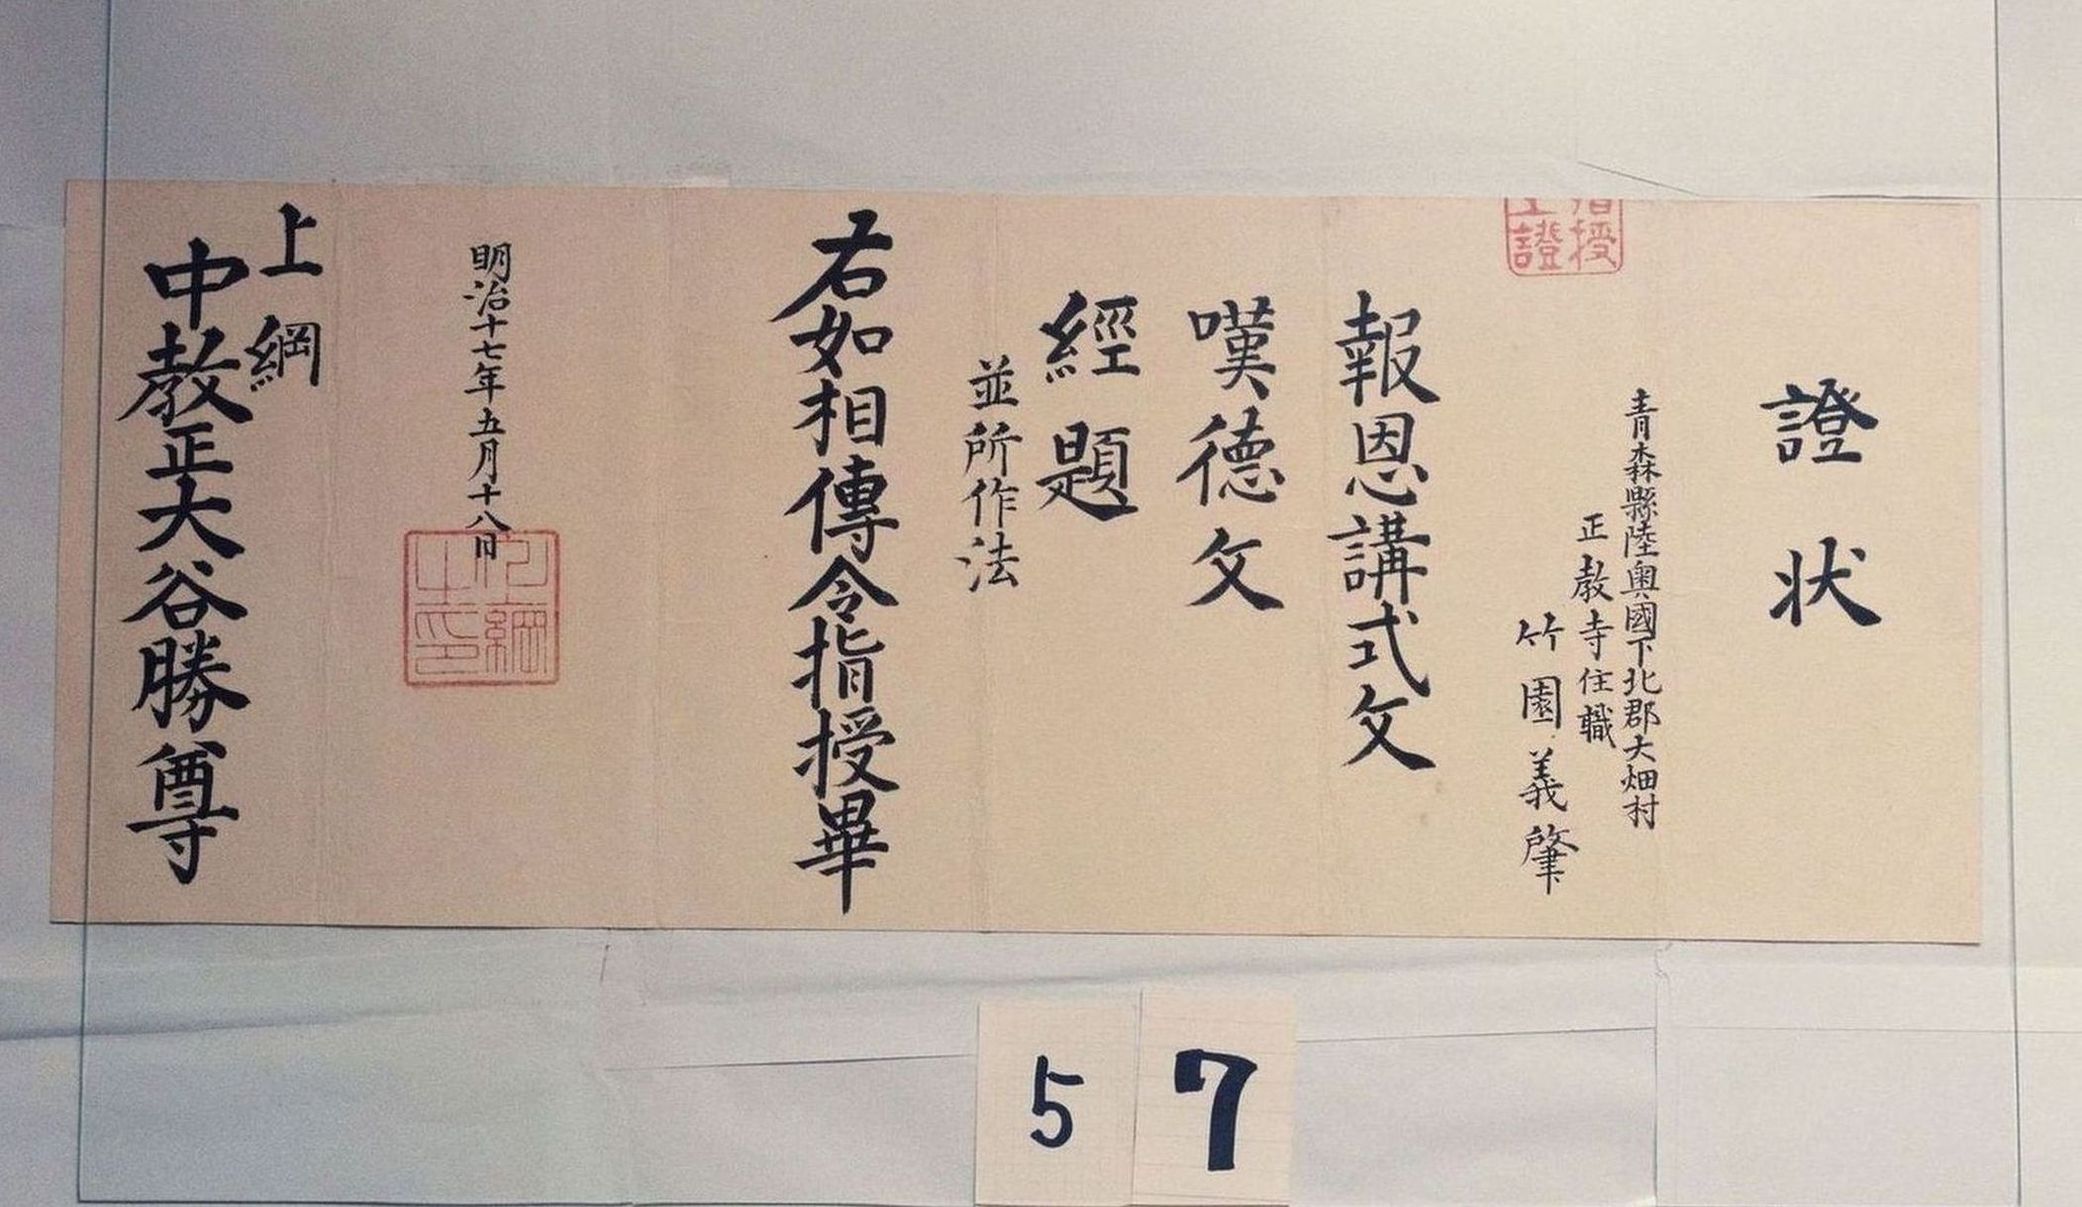 證状
青森縣陸奥國下北郡大畑村
正教寺住職
竹園義肇
授
證
報恩講式文
嘆德文
經題
並所作法
右如相傳令指授畢
明治十七年五月十八日
上綱
中教正大谷勝尊
57